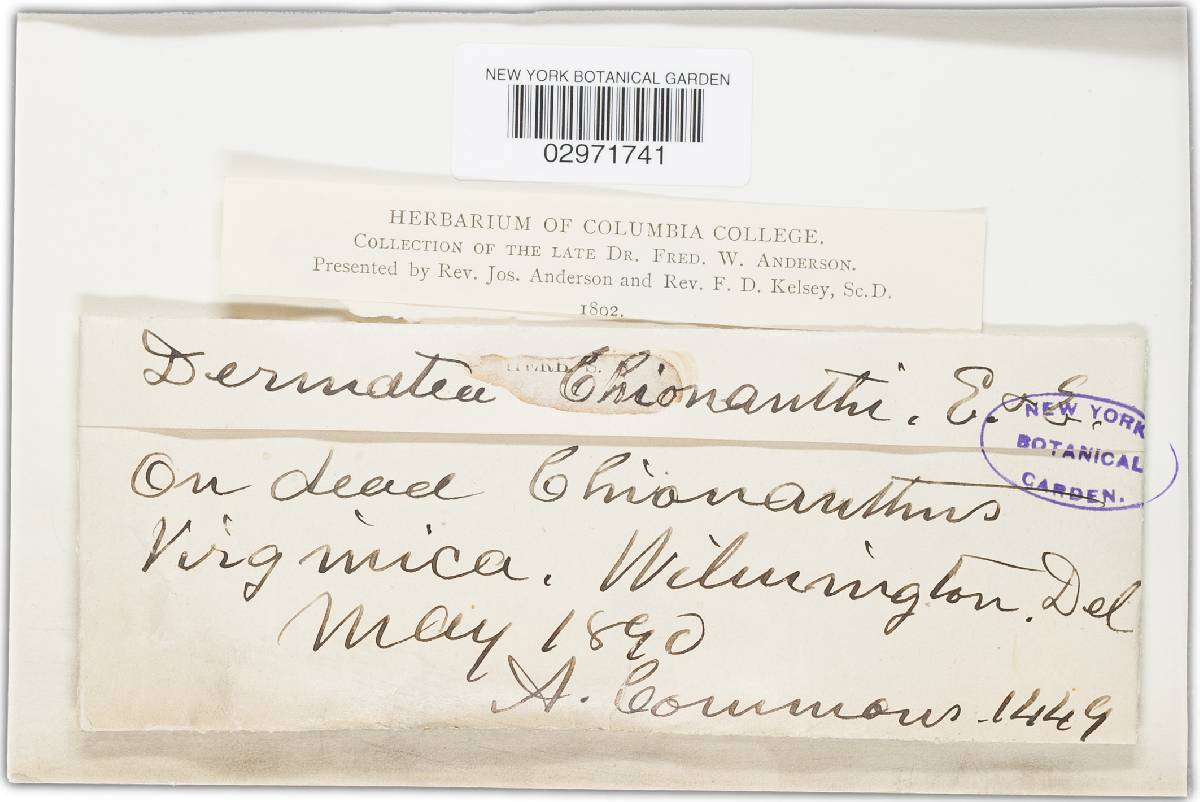 NEW YORK BOTANICAL GARDEN
02971741
HERBARIUM OF COLUMBIA COLLEGE.
COLLECTION OF THE LATE DR. FRED. W. ANDERSON.
Presented by Rev. Jos. Anderson and Rev. F. D. Kelsey, Sc.D.
1802.
HERB. S.
Dermatea Chionanthi. E. & E.
NEW YORK
BOTANICAL
GARDEN.
On dead Chionanthus
Virginica. Wilmington. Del
May 1890
A. Commons 1449